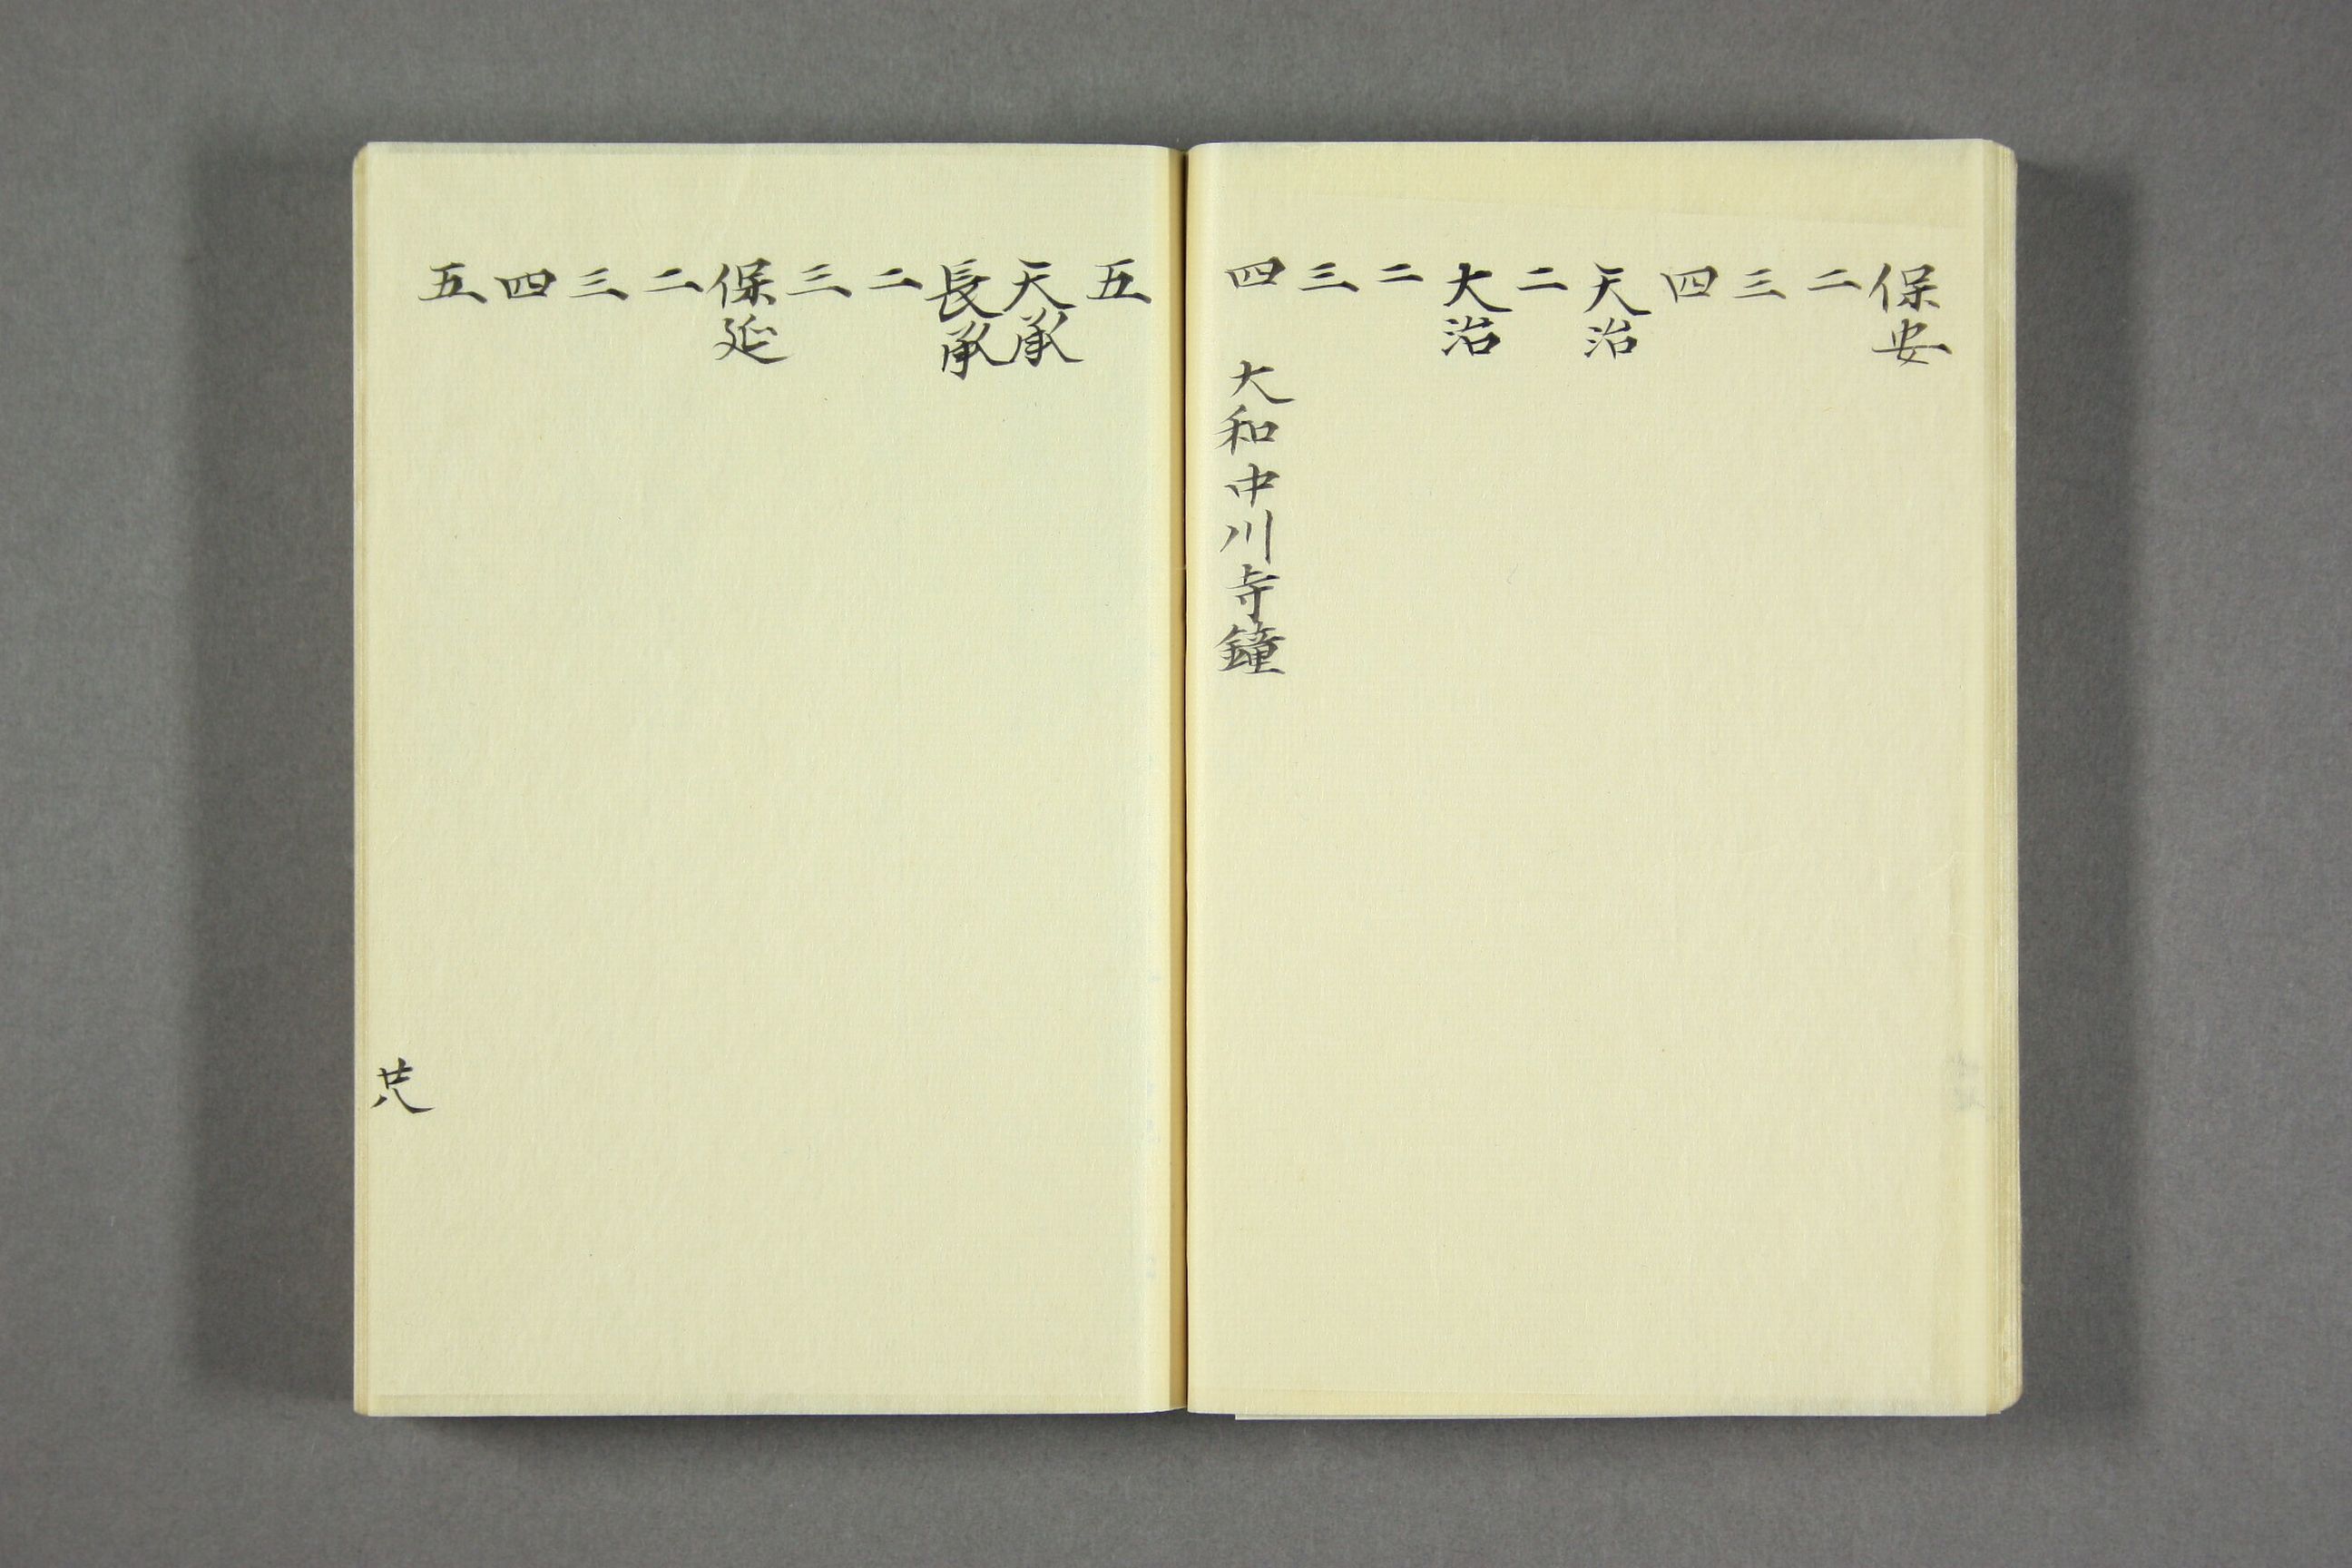 保安
二
三
四
天治
二
大治
二
三
四 大和中川寺鐘
五
天承
長承
二
三
保延
二
三
四
五
廿八